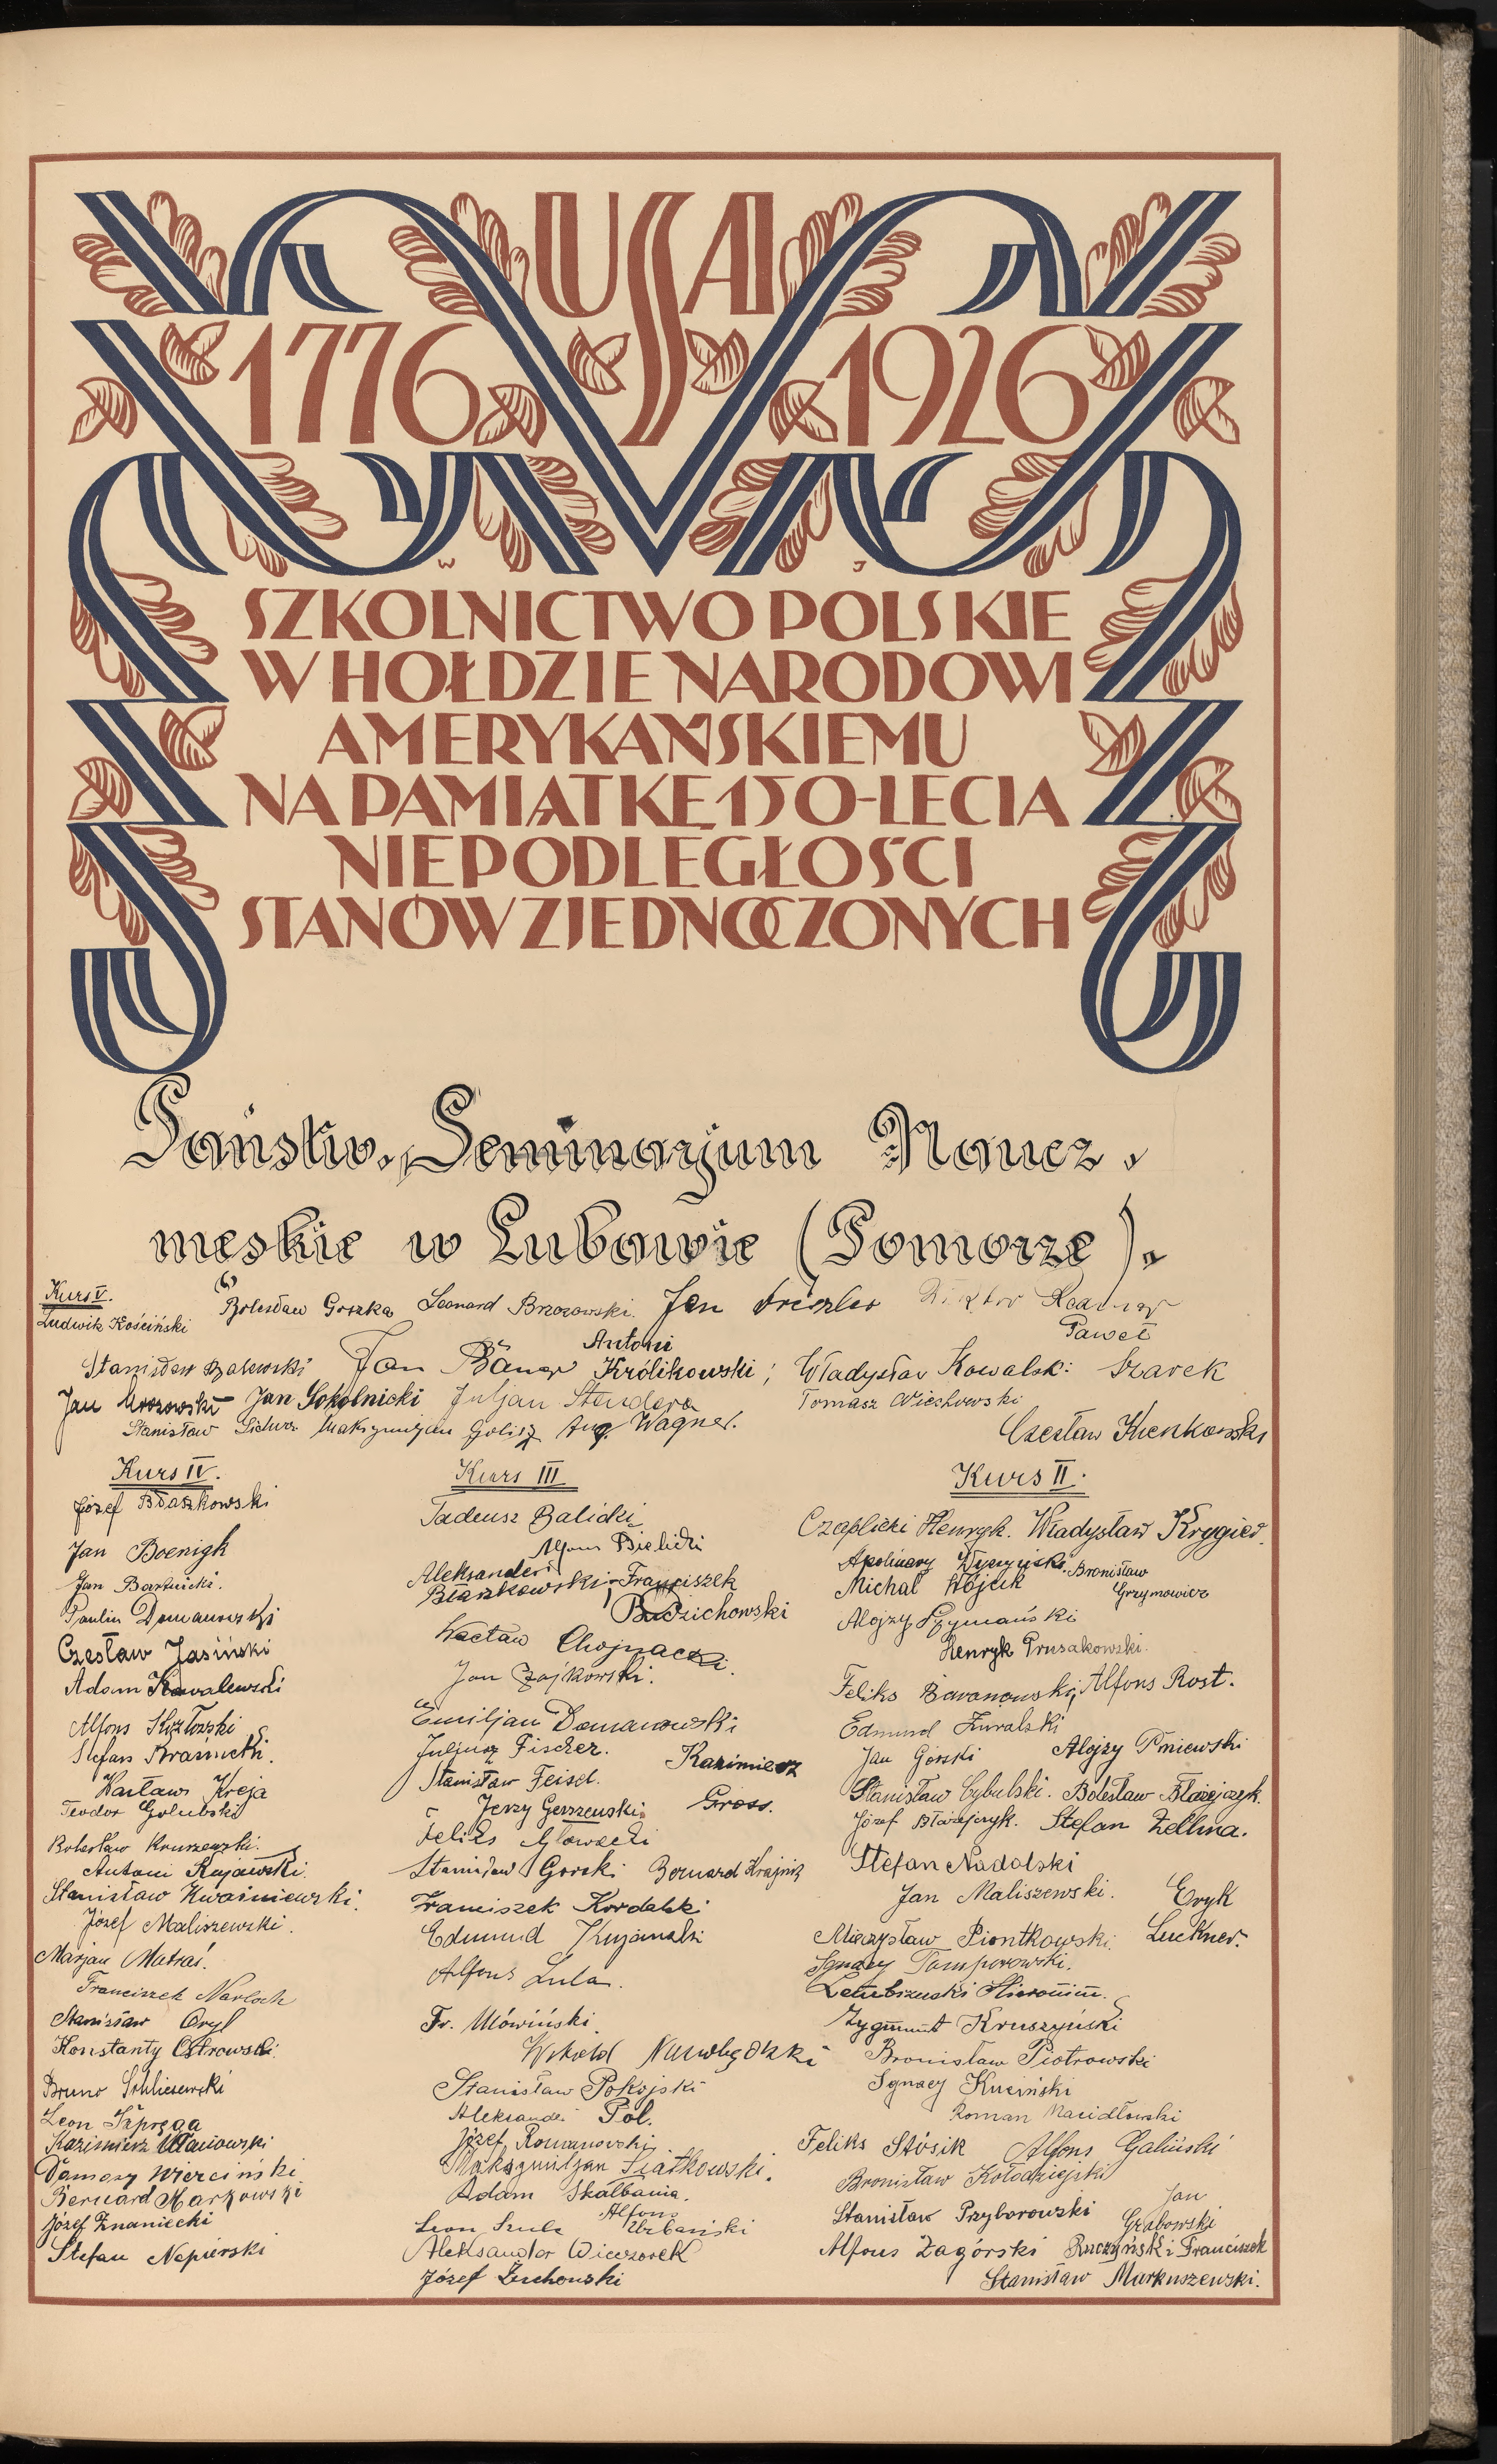 USA
1776 1926
W J
SZKOLNICTWO POLSKIE
W HOŁDZIE NARODOWI
AMERYKAŃSKIEMU
NA PAMIĄTKĘ 150-LECIA
NIEPODLEGŁOŚCI
STANÓW ZJEDNOCZONYCH
Państw. Seminarjum Naucz.
męskie w Lubawie (Pomorze).
Kurs V.
Ludwik Kościński
Bolesław Goszka Leonard Brzozowski Jan
Paweł Szarek
Stanisław Zalewski Jan Antoni Królikowski; Władysław Kowalski
Jan Mrozowski Jan Sokolnicki Juljan Stendera Tomasz Wiechowski
Stanisław Maksymiljan Golisz Aug. Wagner. Czesław
Kurs IV.
Józef Błaszkowski
Jan Boenigk
Jan Bartnicki.
Paulin Domanowski
Czesław Jasiński
Adam Kowalewski
Alfons Kozłowski
Stefan Krasinski.
Wacław Kreja
Teodor Golubski
Bolesław Kruszewski.
Antoni Kujawski.
Stanisław Kwaśniewski.
Józef Maliszewski.
Marjan Matraś.
Franciszek Narloch
Stanisław Oryl
Konstanty Ostrowski
Bruno Schliewerski
Leon Szpręga
Kazimierz Ułanowski
Damazy Wierciński
Bernard Markowski
Józef Znaniecki
Stefan Napierski
Kurs III
Tadeusz Balicki
Alfons Bielicki
Aleksander Błaszkowski; Franciszek
Budzichowski
Wacław Chojnacki.
Jan Czajkowski.
Emiljan Domanowski
Juljusz Fischer.
Stanisław Feisel. Kazimierz
Jerzy Gerszewski. Gross.
Feliks Głowacki
Stanisław Gorski Bernard Krajnik
Franciszek Kordalski
Edmund Kujawski
Alfons Lula.
Fr. Mówiński.
Witold
Stanisław Pokojski
Aleksander Pol.
Józef Romanowski
Maksymiljan Siatkowski.
Adam Skalbania.
Leon Szulc Alfons Urbański
Aleksander Wieczorek
Józef Żuchowski
Kurs II.
Czaplicki Henryk. Władysław Krygier.
Apolinary Bronisław
Michał Wójcik Grzymowicz
Alojzy Szymański
Henryk Prusakowski.
Feliks Baranowski, Alfons Rost.
Edmund Żuralski
Jan Górski Alojzy Pniewski
Stanisław Cybulski. Bolesław Błażejczyk.
Józef Błażejczyk. Stefan Zellma.
Stefan Nadolski
Jan Maliszewski. Eryk
Mieczysław Piontkowski. Luckner.
Ignacy Tamporowski.
Hieronim.
Zygmunt Kruszyński
Bronisław Piotrowski
Ignacy Kuciński
Roman Macidłowski
Feliks Stósik Alfons Galiński
Bronisław Kołodziejski
Stanisław Przyborowski Jan Grabowski
Alfons Zagórski Ruczyński Franciszek
Stanisław Markuszewski.